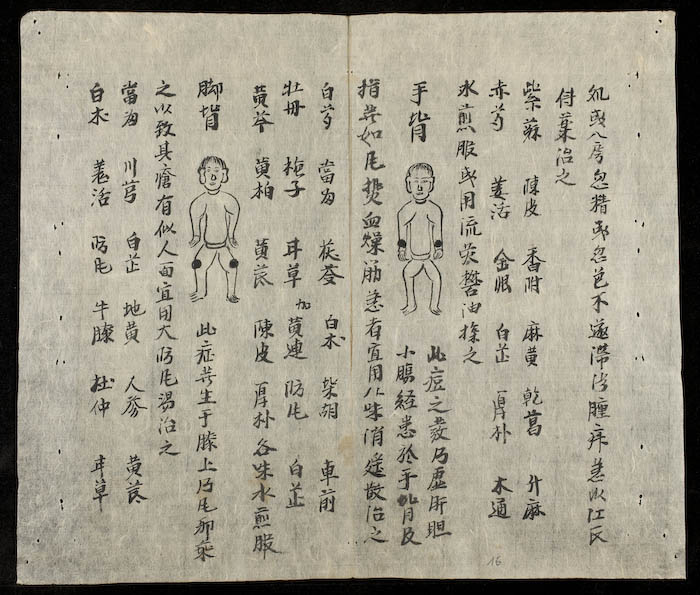 入房忽精或忽不遂滞腫江氏
付藥治之
紫蘇 陳皮 香附 麻黄 乾葛 升麻
赤芍 羗活 金銀 白芷 厚朴 木通
水煎服或用流礬油搽之
手背
此痘之發乃虚肝胆
小腸経患於手背及
指如血燥筋者宜用八味消遥散治之
白芍 當归 茯苓 白术 柴胡 車前
牡丹 梔子 甘草 加黄連 防风 白芷
黄芩 黄柏 黄芪 陳皮 厚朴各味水煎服
脚背
此症其生于膝上乃风邪乘
之以致其瘡有似人面宜用大防风湯治之
當归 川芎 白芷 地黄 人參 黄芪
白术 羗活 防风 牛膝 杜仲 甘草
16